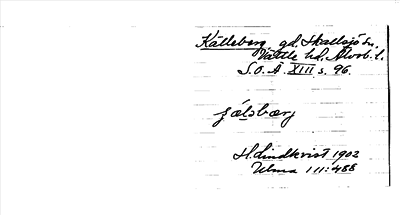 Källeberg gd. Skallsjö sn.
Vättle hd. Älvsb. l.
S.O.Ä. XIII s. 96.
H. Lindkvist 1902
Ulma 111:488